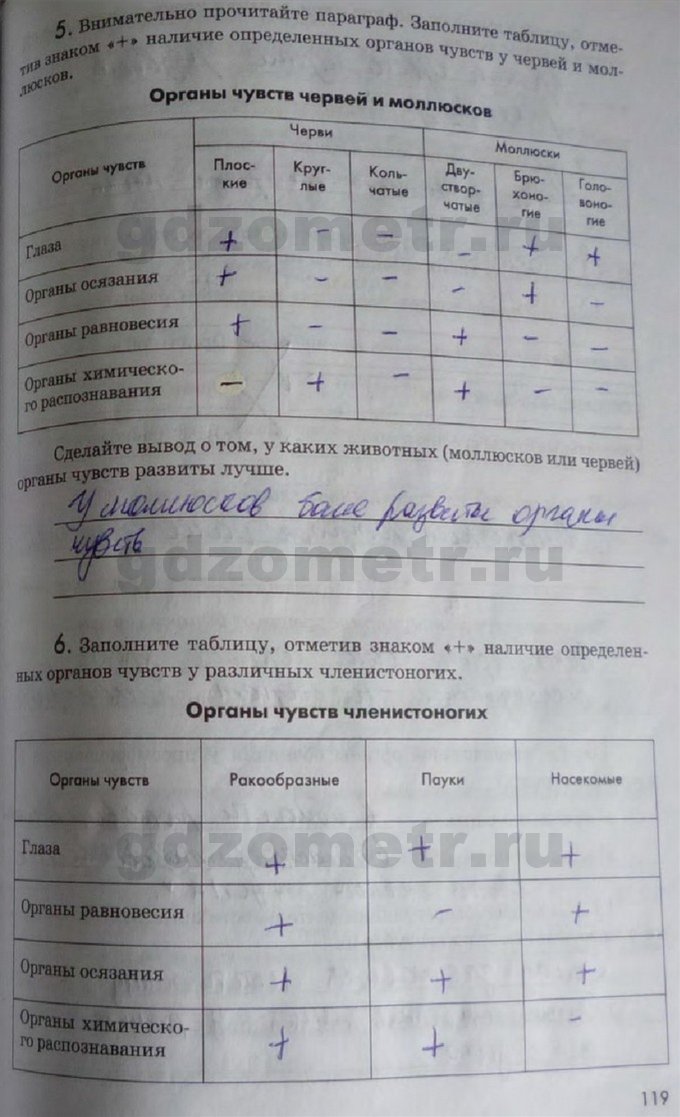 5. Внимательно прочитайте параграф. Заполните таблицу, отме-
тив знаком «+» наличие определенных органов чувств у червей и мол-
люсков.
Органы чувств червей и моллюсков
Органы чувств Черви Моллюски
Плос-
кие
Круг-
лые
Коль-
чатые
Дву-
створ-
чатые
Брю-
хоно-
гие
Голо-
воно-
гие
gdzometr.ru
Глаза + - - - + +
Органы осязания + - - - + -
Органы равновесия + - - + - -
Органы химическо-
го распознавания - + - + - -
Сделайте вывод о том, у каких животных (моллюсков или червей)
органы чувств развиты лучше.
У моллюсков боле развиты органы
чувств
gdzometr.ru
6. Заполните таблицу, отметив знаком «+» наличие определен-
ных органов чувств у различных членистоногих.
Органы чувств членистоногих
Органы чувств Ракообразные Пауки Насекомые
gdzometr.ru
Глаза + + +
Органы равновесия + - +
Органы осязания + + +
Органы химическо-
го распознавания + + -
119